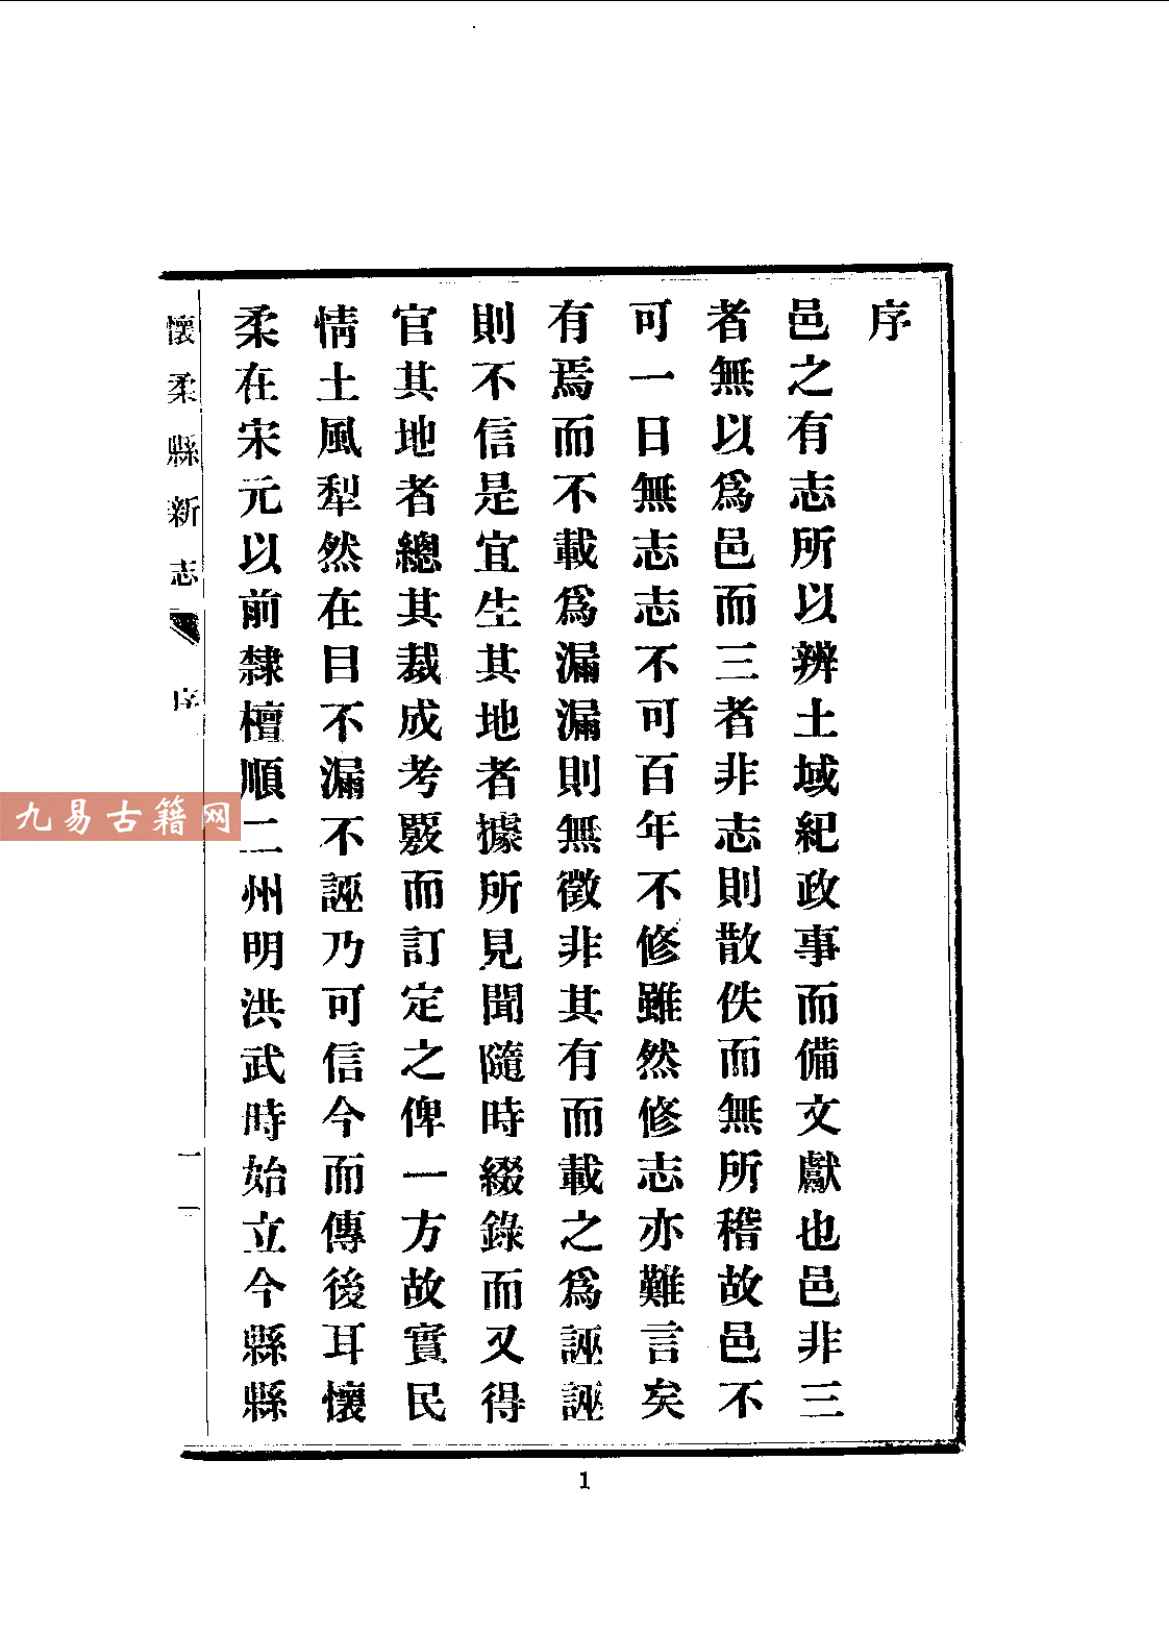 序
邑之有志所以辨土域紀政事而備文獻也邑非三
者無以爲邑而三者非志則散佚而無所稽故邑不
可一日無志志不可百年不修雖然修志亦難言矣
有焉而不載爲漏漏則無徵非其有而載之爲誣誣
則不信是宜生其地者據所見聞隨時綴錄而又得
官其地者總其裁成考覈而訂定之俾一方故實民
情土風犁然在目不漏不誣乃可信今而傳後耳懷
柔在宋元以前隸檀順二州明洪武時始立今縣縣
懷柔縣新志 序 一 一
九易古籍网
1